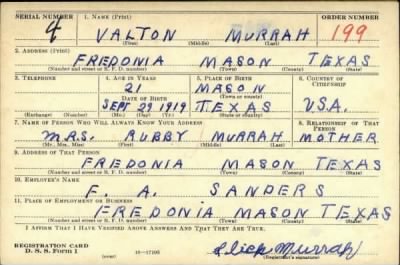 SERIAL NUMBER 1. NAME (Print) ORDER NUMBER
4 VALTON MURRAH 199
(First) (Middle) (Last)
2. ADDRESS (Print)
FREDONIA MASON TEXAS
(Number and street or R. F. D. number) (Town) (County) (State)
3. TELEPHONE 4. AGE IN YEARS 5. PLACE OF BIRTH 6. COUNTRY OF CITIZENSHIP
21 MASON
DATE OF BIRTH (Town or county)
SEPT 29 1919 TEXAS U.S.A.
(Exchange) (Number) (Mo.) (Day) (Yr.) (State or country)
7. NAME OF PERSON WHO WILL ALWAYS KNOW YOUR ADDRESS 8. RELATIONSHIP OF THAT PERSON
MRS. RUBBY MURRAH MOTHER
(Mr., Mrs., Miss) (First) (Middle) (Last)
9. ADDRESS OF THAT PERSON
FREDONIA MASON TEXAS
(Number and street or R. F. D. number) (Town) (County) (State)
10. EMPLOYER'S NAME
F. A. SANDERS
11. PLACE OF EMPLOYMENT OR BUSINESS
FREDONIA MASON TEXAS
(Number and street or R. F. D. number) (Town) (County) (State)
I AFFIRM THAT I HAVE VERIFIED ABOVE ANSWERS AND THAT THEY ARE TRUE.
REGISTRATION CARD
D. S. S. Form 1 (over) 16—17105 Murrah
(Registrant's signature)